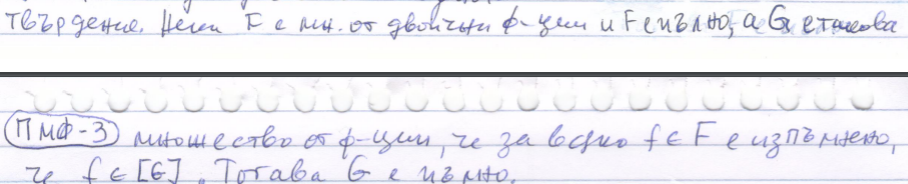 Твърдение. Нека F е мн. от двоични ф-ции и F е пълно, а G е такова
ПМФ-3 множество от ф-ции, че за всяко f ∈ F е изпълнено,
че f ∈ [G]. Тогава G е пълно.